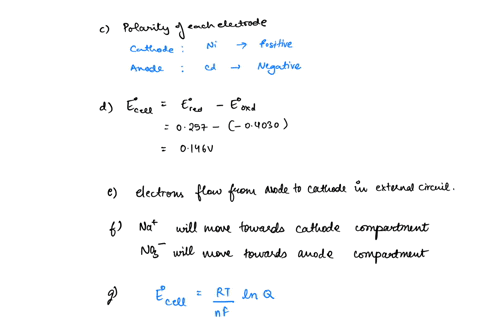 c) Polarity of each electrode
Cathode : Ni → Positive
Anode : Cd → Negative
d) E°cell = E°red - E°oxd
= 0.257 - (-0.4030)
= 0.146V
e) electrons flow from anode to cathode in external circuit.
f) Na+ will move towards cathode compartment
NO3- will move towards anode compartment
g) E°cell = RT/nF ln Q